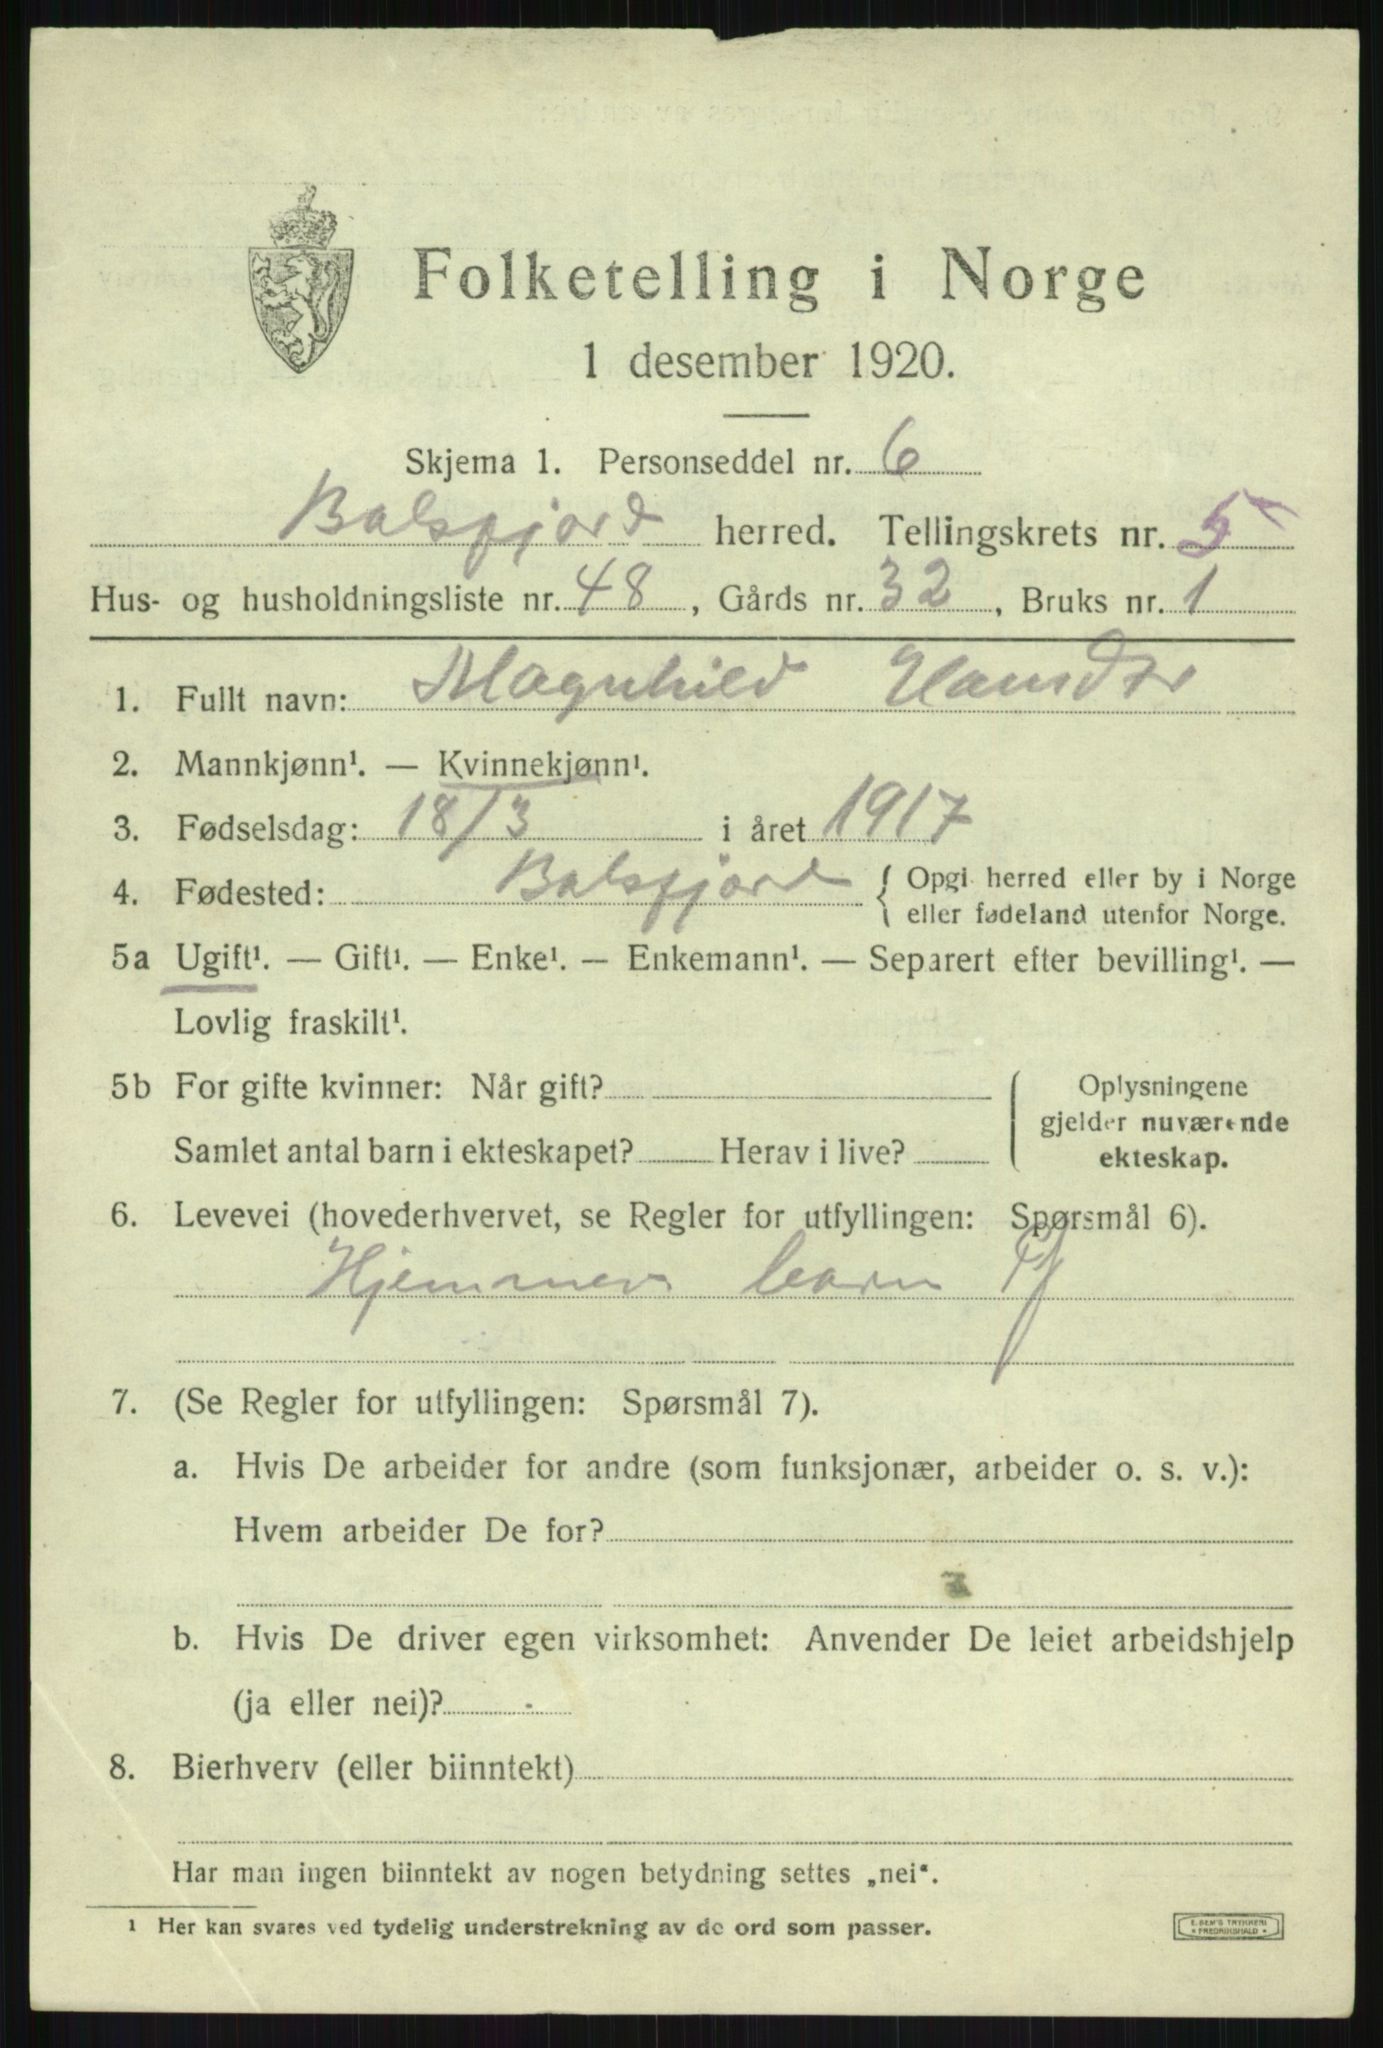 Folketelling i Norge
1 desember 1920.
Skjema 1. Personseddel nr. 6
Balsfjord herred. Tellingskrets nr. 5
Hus- og husholdningsliste nr. 48, Gårds nr. 32, Bruks nr. 1
1. Fullt navn: Magnhild Hansdtr
2. Mannkjønn¹. — Kvinnekjønn¹.
3. Fødselsdag: 18/3 i året 1917
4. Fødested: Balsfjord { Opgi herred eller by i Norge
eller fødeland utenfor Norge.
5a Ugift¹. — Gift¹. — Enke¹. — Enkemann¹. — Separert efter bevilling¹. —
Lovlig fraskilt¹.
5b For gifte kvinner: Når gift?
Samlet antal barn i ekteskapet? Herav i live?
Oplysningene
gjelder nuværende
ekteskap.
6. Levevei (hovederhvervet, se Regler for utfyllingen: Spørsmål 6).
Hjemmev barn
7. (Se Regler for utfyllingen: Spørsmål 7).
a. Hvis De arbeider for andre (som funksjonær, arbeider o. s. v.):
Hvem arbeider De for?
b. Hvis De driver egen virksomhet: Anvender De leiet arbeidshjelp
(ja eller nei)? -
8. Bierhverv (eller biinntekt)
Har man ingen biinntekt av nogen betydning settes „nei“.
¹ Her kan svares ved tydelig understrekning av de ord som passer.
E. SEM'S TRYKKERI
• FREDRIKSHALD •